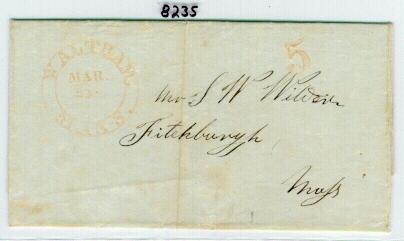 8235
WALTHAM
MAR.
23
MASS.
5
Mr S W Wilder
Fitchburgh
Mass